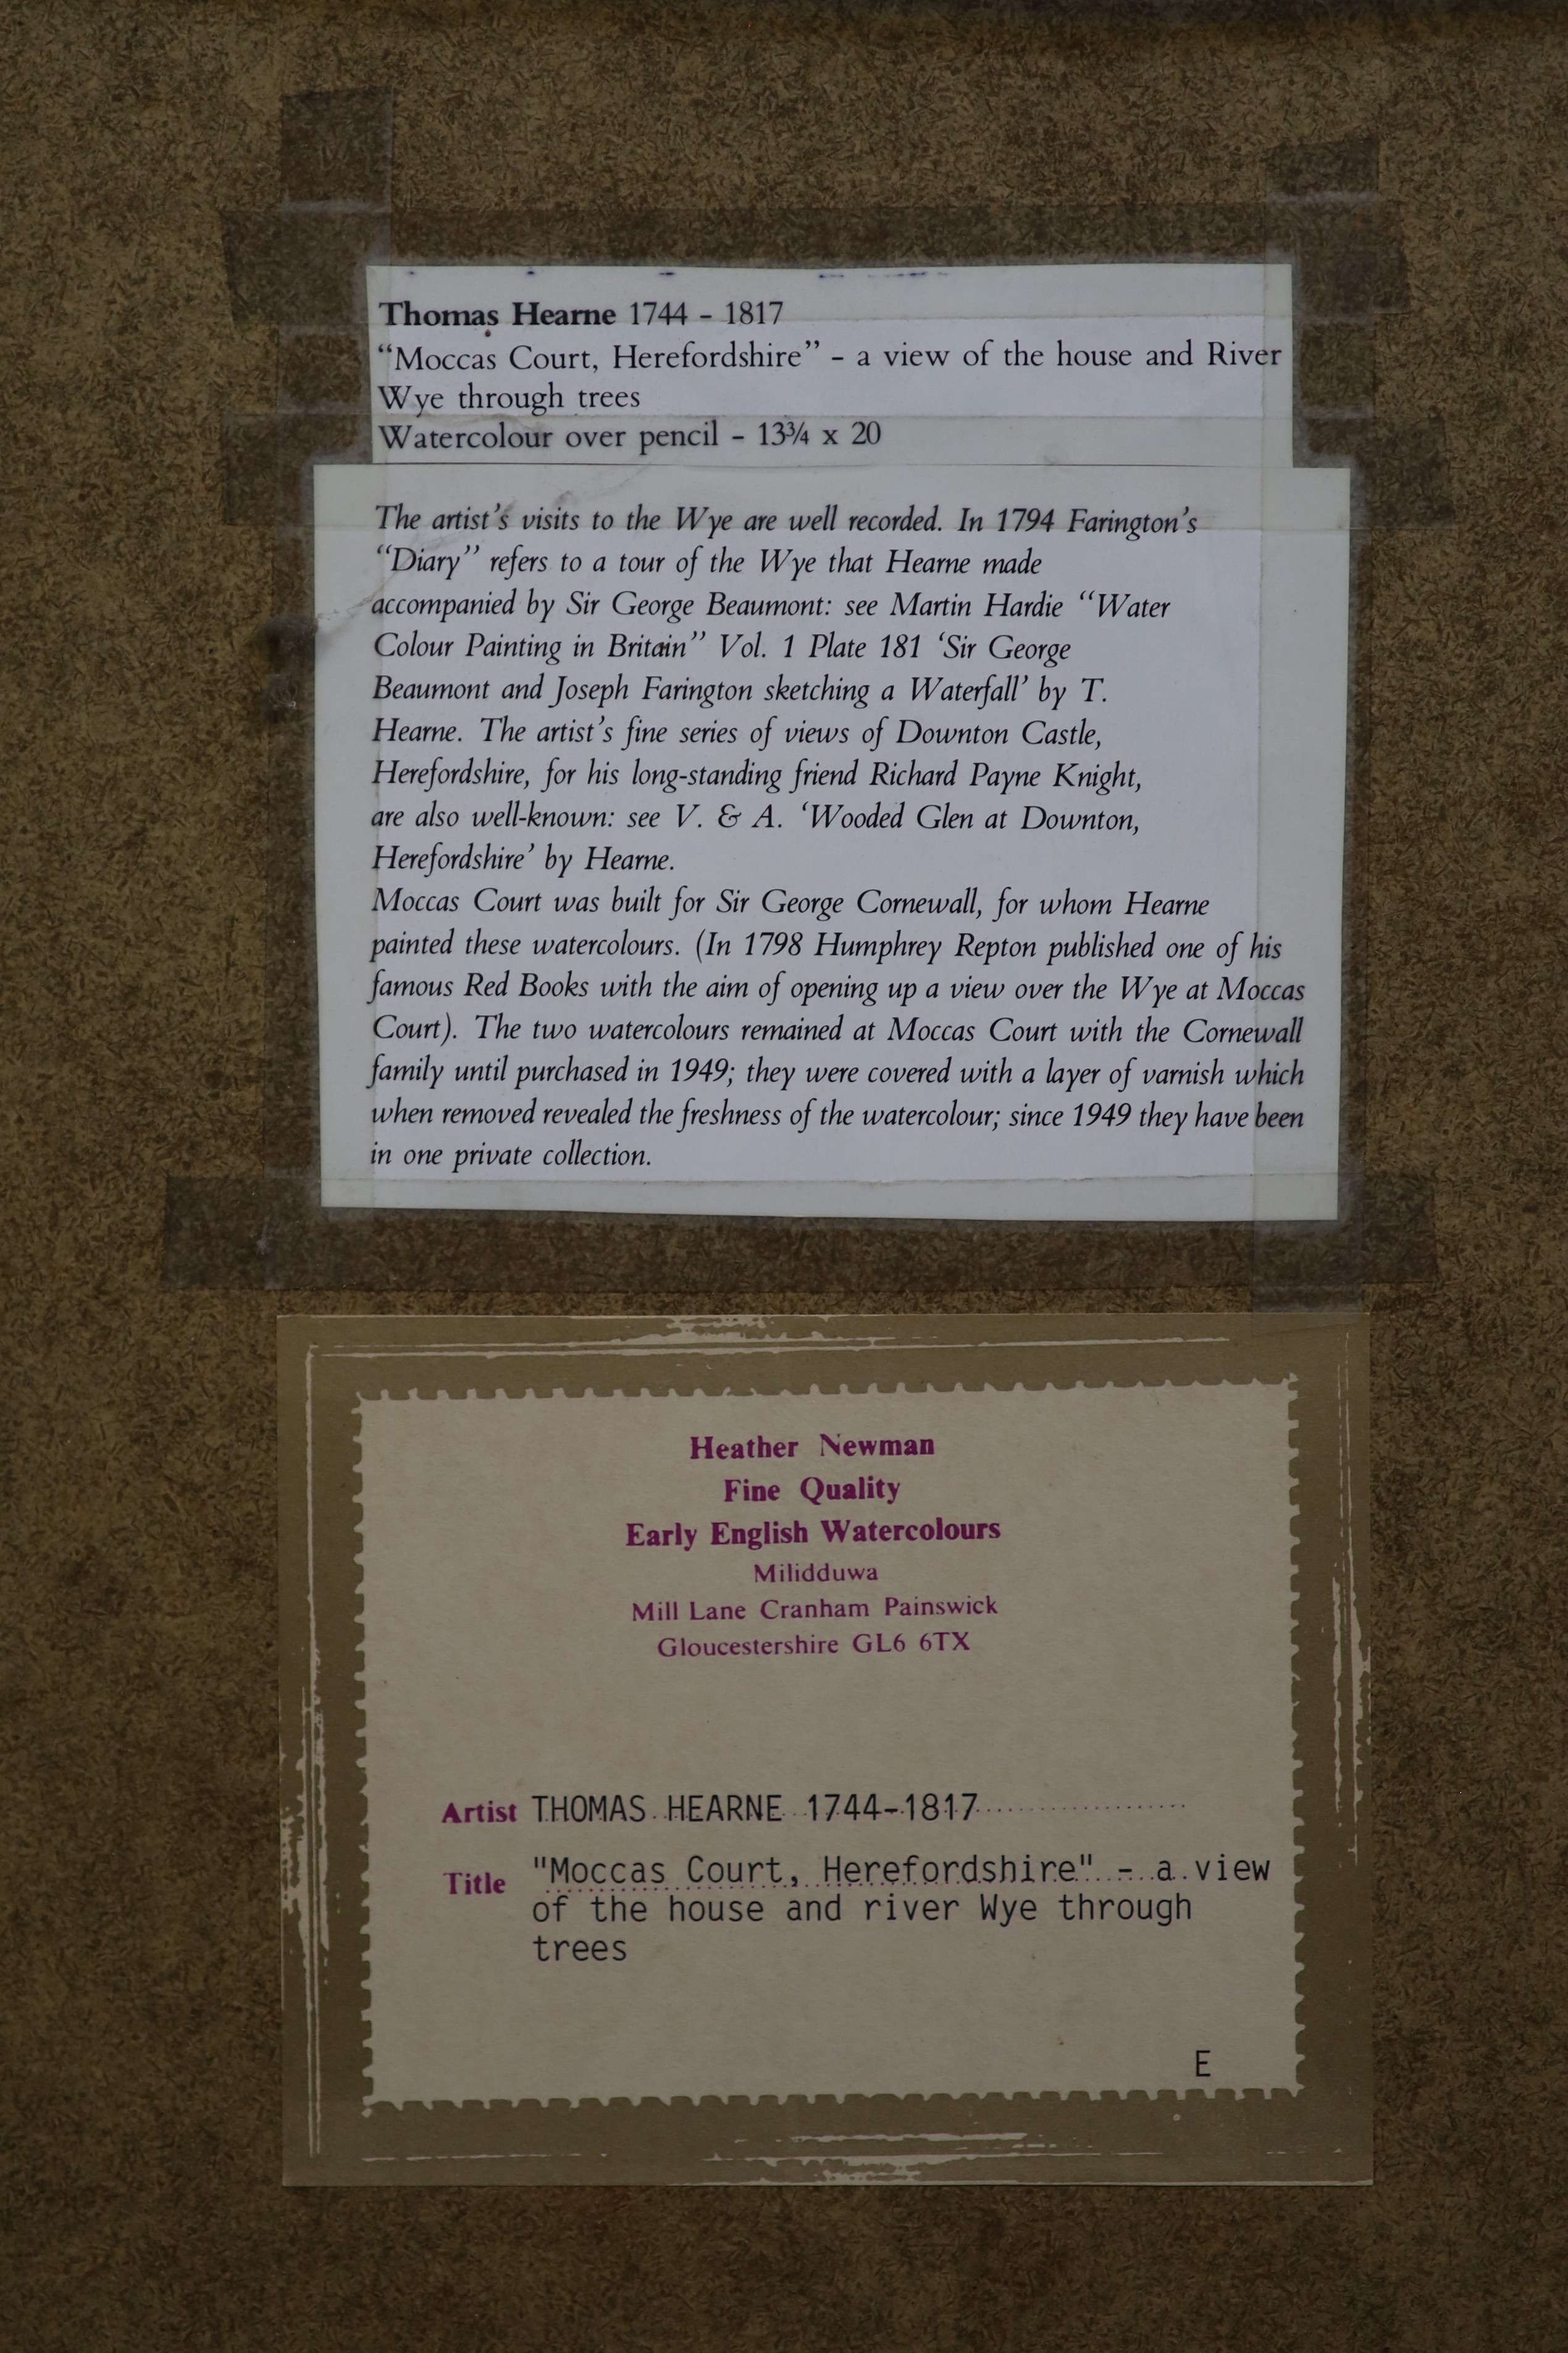 Thomas Hearne 1744 - 1817
“Moccas Court, Herefordshire” - a view of the house and River
Wye through trees
Watercolour over pencil - 13¾ x 20
The artist’s visits to the Wye are well recorded. In 1794 Farington’s
“Diary” refers to a tour of the Wye that Hearne made
accompanied by Sir George Beaumont: see Martin Hardie “Water
Colour Painting in Britain” Vol. 1 Plate 181 ‘Sir George
Beaumont and Joseph Farington sketching a Waterfall’ by T.
Hearne. The artist’s fine series of views of Downton Castle,
Herefordshire, for his long-standing friend Richard Payne Knight,
are also well-known: see V. & A. ‘Wooded Glen at Downton,
Herefordshire’ by Hearne.
Moccas Court was built for Sir George Cornewall, for whom Hearne
painted these watercolours. (In 1798 Humphrey Repton published one of his
famous Red Books with the aim of opening up a view over the Wye at Moccas
Court). The two watercolours remained at Moccas Court with the Cornewall
family until purchased in 1949; they were covered with a layer of varnish which
when removed revealed the freshness of the watercolour; since 1949 they have been
in one private collection.
Heather Newman
Fine Quality
Early English Watercolours
Milidduwa
Mill Lane Cranham Painswick
Gloucestershire GL6 6TX
Artist THOMAS HEARNE 1744-1817
Title "Moccas Court, Herefordshire" - a view
of the house and river Wye through
trees
E